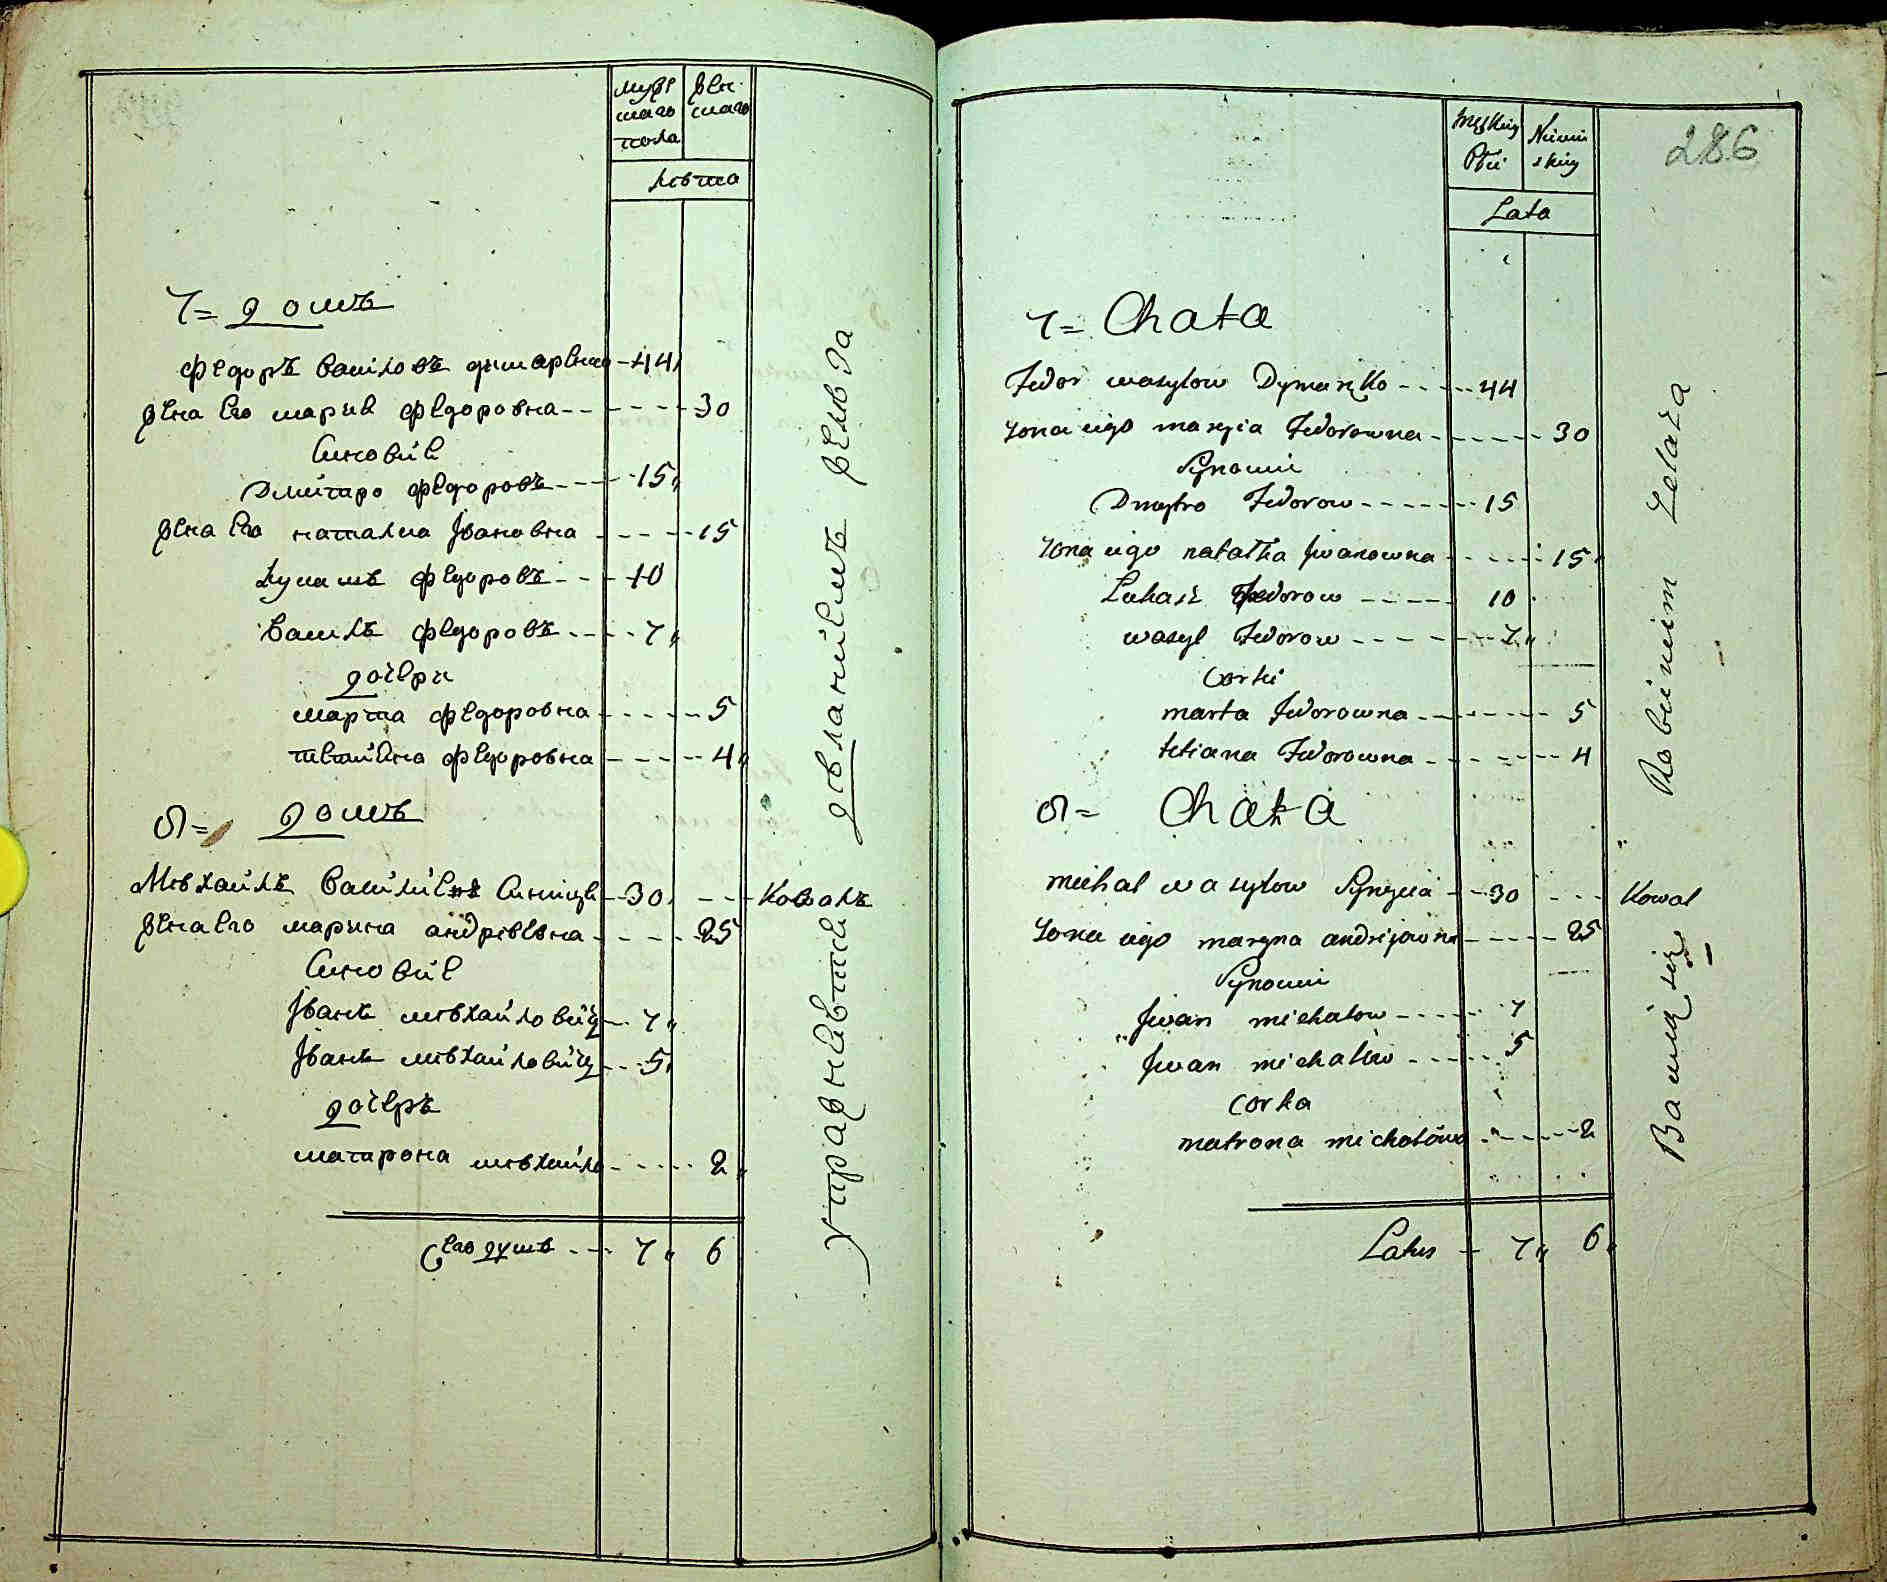 муже
скаго
пола
жен
скаго
лѣта
7 = домъ
Федоръ Василовъ Димаренко 44
жена Его Мария Федоровна 30
Синовіе
Дмитро Федоровъ 15
жена Его Наталка Івановна 15
Лукашъ Федоровъ 10
Василъ Федоровъ 7
дочери
Марта Федоровна 5
Тетиена Федоровна 4
8 = домъ
Михайлъ Василіевъ Синиця 30 Ковалъ
жена Его Марина Андріевна 25
Синовіе
Іванъ Михайловичъ 7
Іванъ Михайловичъ 5
дочеръ
Матрона Михайло 2
Сего душъ 7 6
упражняется деланіемъ железа
286
męskiey
Płci
Niewie
skiey
Lata
7 = Chata
Fedor wasylow Dymarzko 44
Zona iego maryia Fedorowna 30
Synowie
Dmytro Fedorow 15
Zona iego natalka Jwanowna 15
Lukasz Fedorow 10
wasyl Fedorow 7
Corki
marta Fedorowna 5
tetiana Fedorowna 4
8 = Chata
michal wasylow Synycia 30 Kowal
Zona iego maryna andrijowna 25
Synowie
Jwan michalow 7
Jwan michalow 5
Corka
matrona michalowa 2
Latus 7 6
Bawią się Robieniem Zelaza